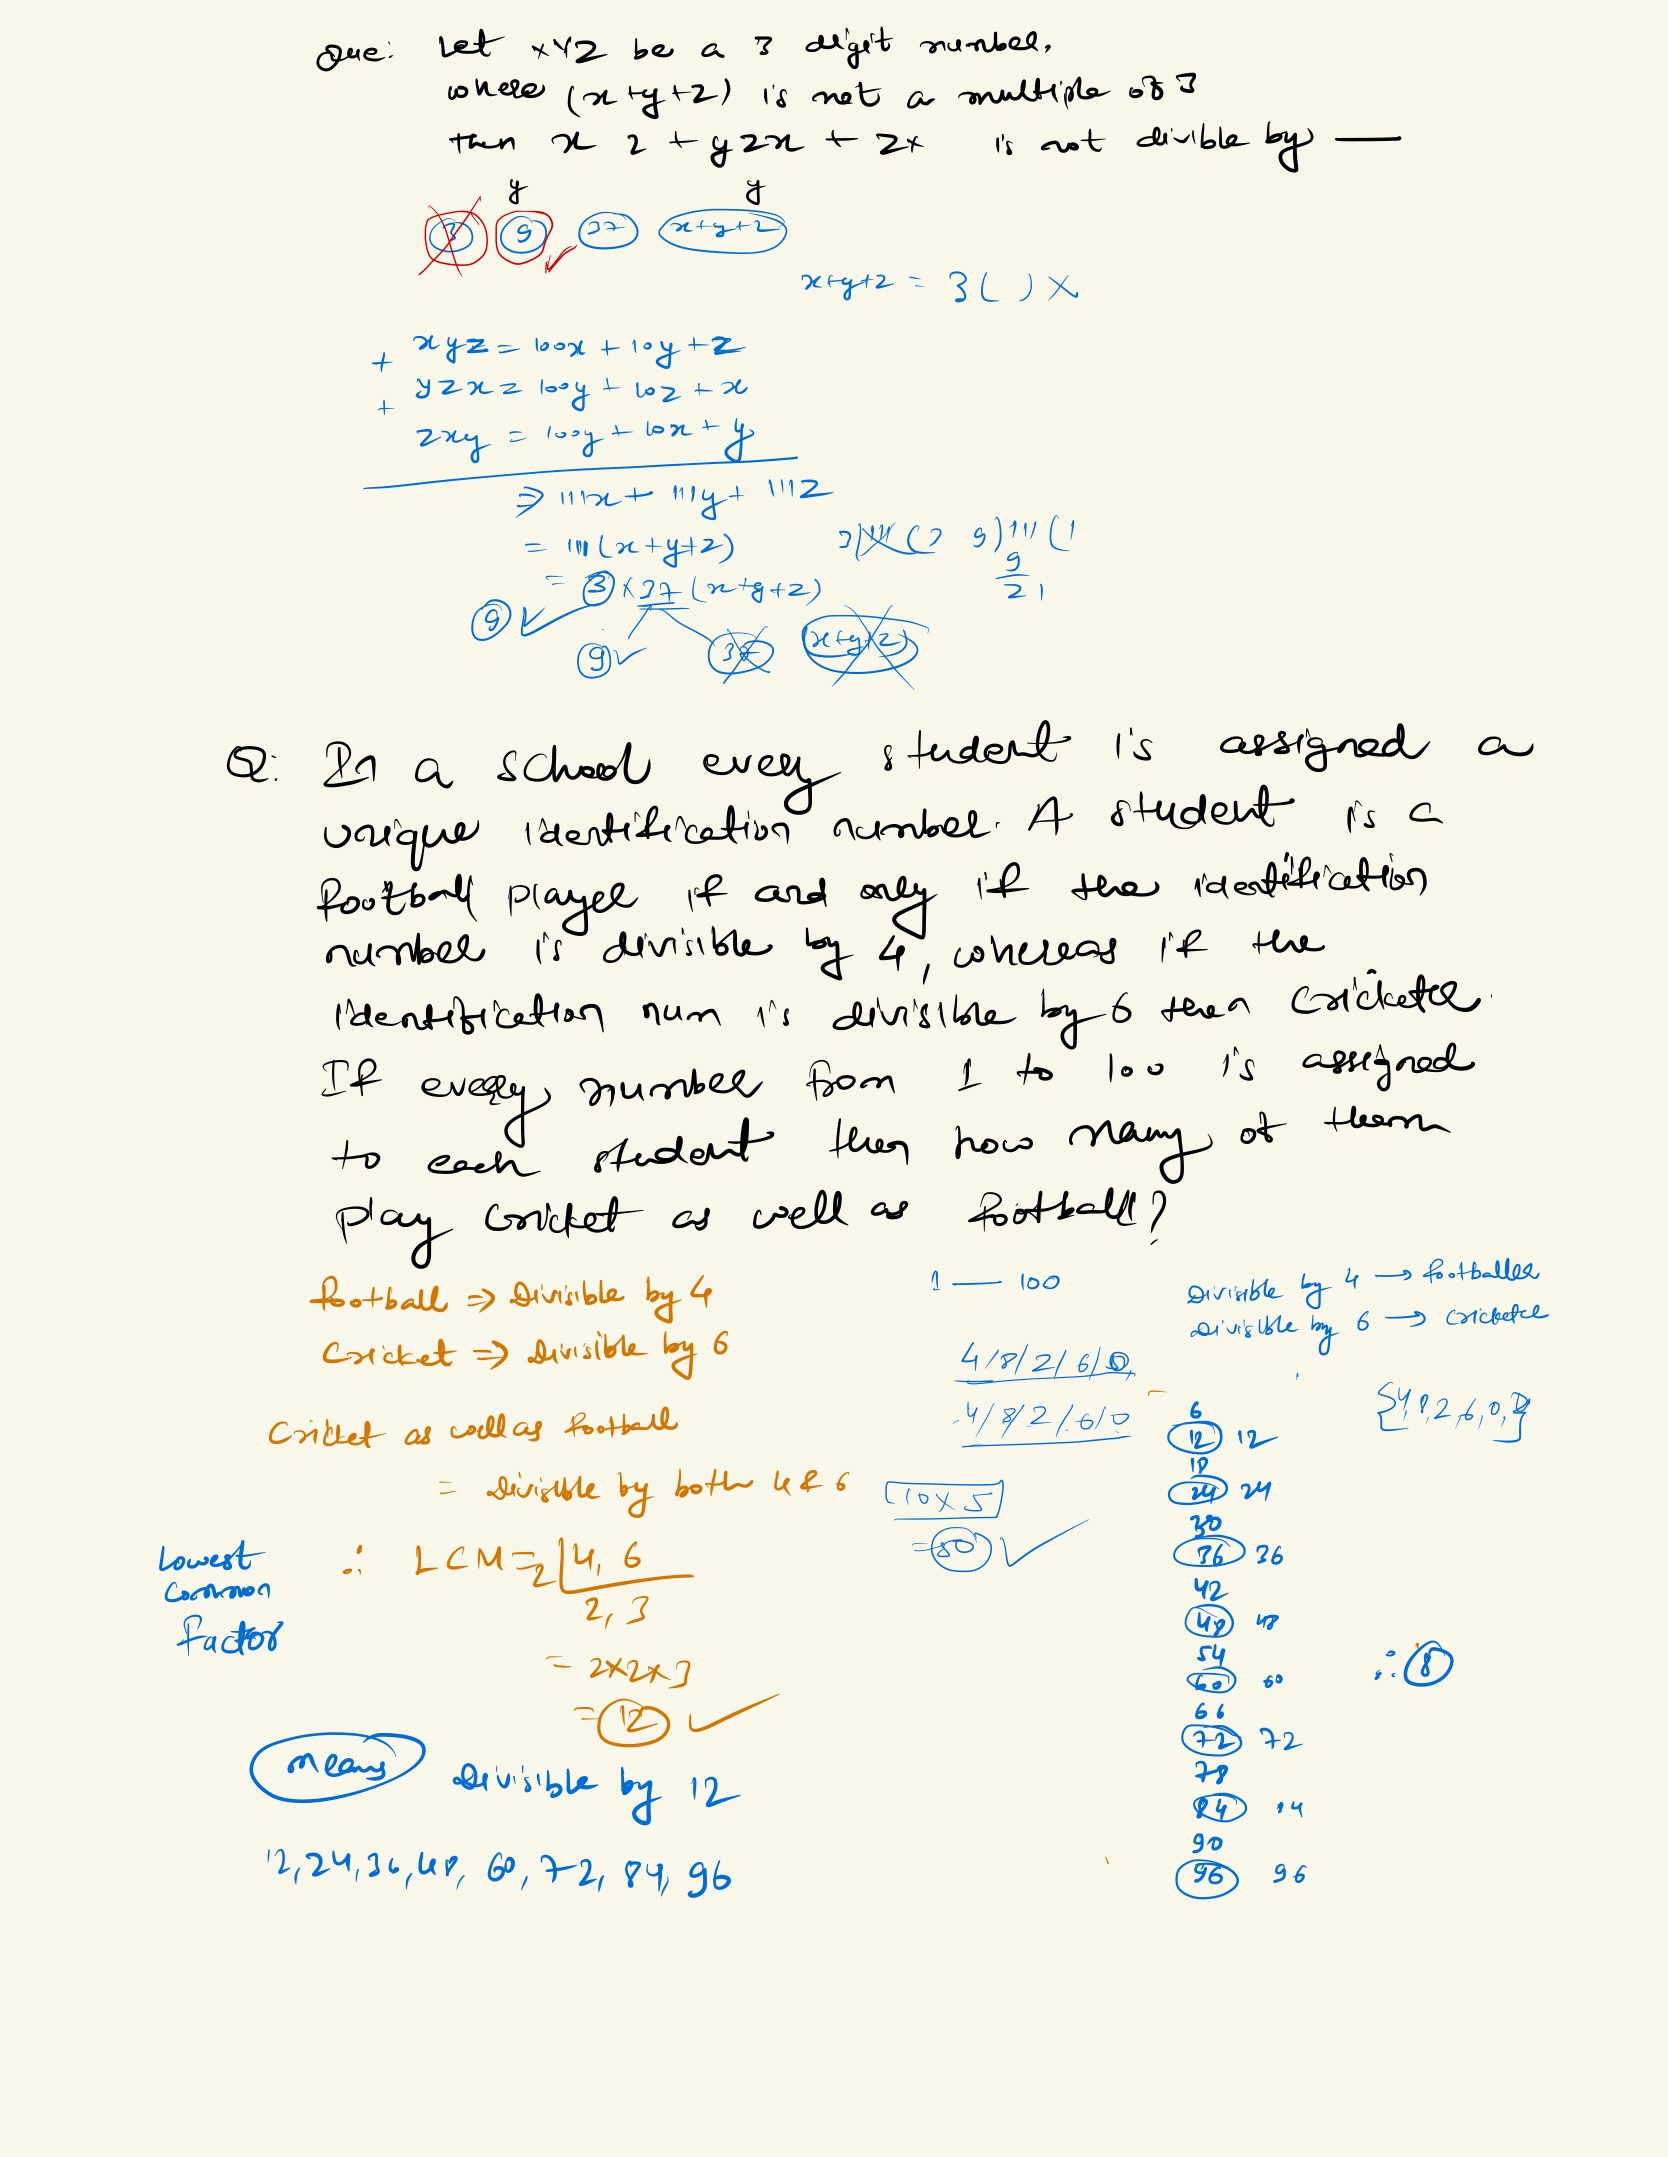 Que: Let xYZ be a 3 digit number,
where (x+y+z) is not a multiple of 3
then x z + yzx + zx is not divible by —
y y
3 9 37 x+y+z
x+y+z = 3( ) ×
+ xyz = 100x + 10y + z
+ yzx = 100y + 10z + x
zxy = 100y + 10x + y
⇒ 111x + 111y + 111z
= 111(x+y+z)
9)111(1
9
21
= 3 × 37 (x+y+z)
9 ✓
9 ✓ 37 (x+y+z)
Q: In a school every student is assigned a
unique identification number. A student is a
football player if and only if the identification
number is divisible by 4, whereas if the
identification num is divisible by 6 then cricketer.
If every number from 1 to 100 is assigned
to each student then how many of them
play cricket as well as football?
football ⇒ Divisible by 4
Cricket ⇒ Divisible by 6
Cricket as well as football
= Divisible by both 4 & 6
Lowest
Common
factor
∴ LCM = 2|4, 6
2, 3
= 2×2×3
= 12 ✓
means Divisible by 12
12, 24, 36, 48, 60, 72, 84, 96
1 — 100
4/8/2/6/0
4/8/2/6/0
10 × 5
= 50 ✓
Divisible by 4 → footballer
Divisible by 6 → cricketer
6
12 12
18
24 24
30
36 36
42
48 48
54
60 60
66
72 72
78
84 84
90
96 96
∴ 8